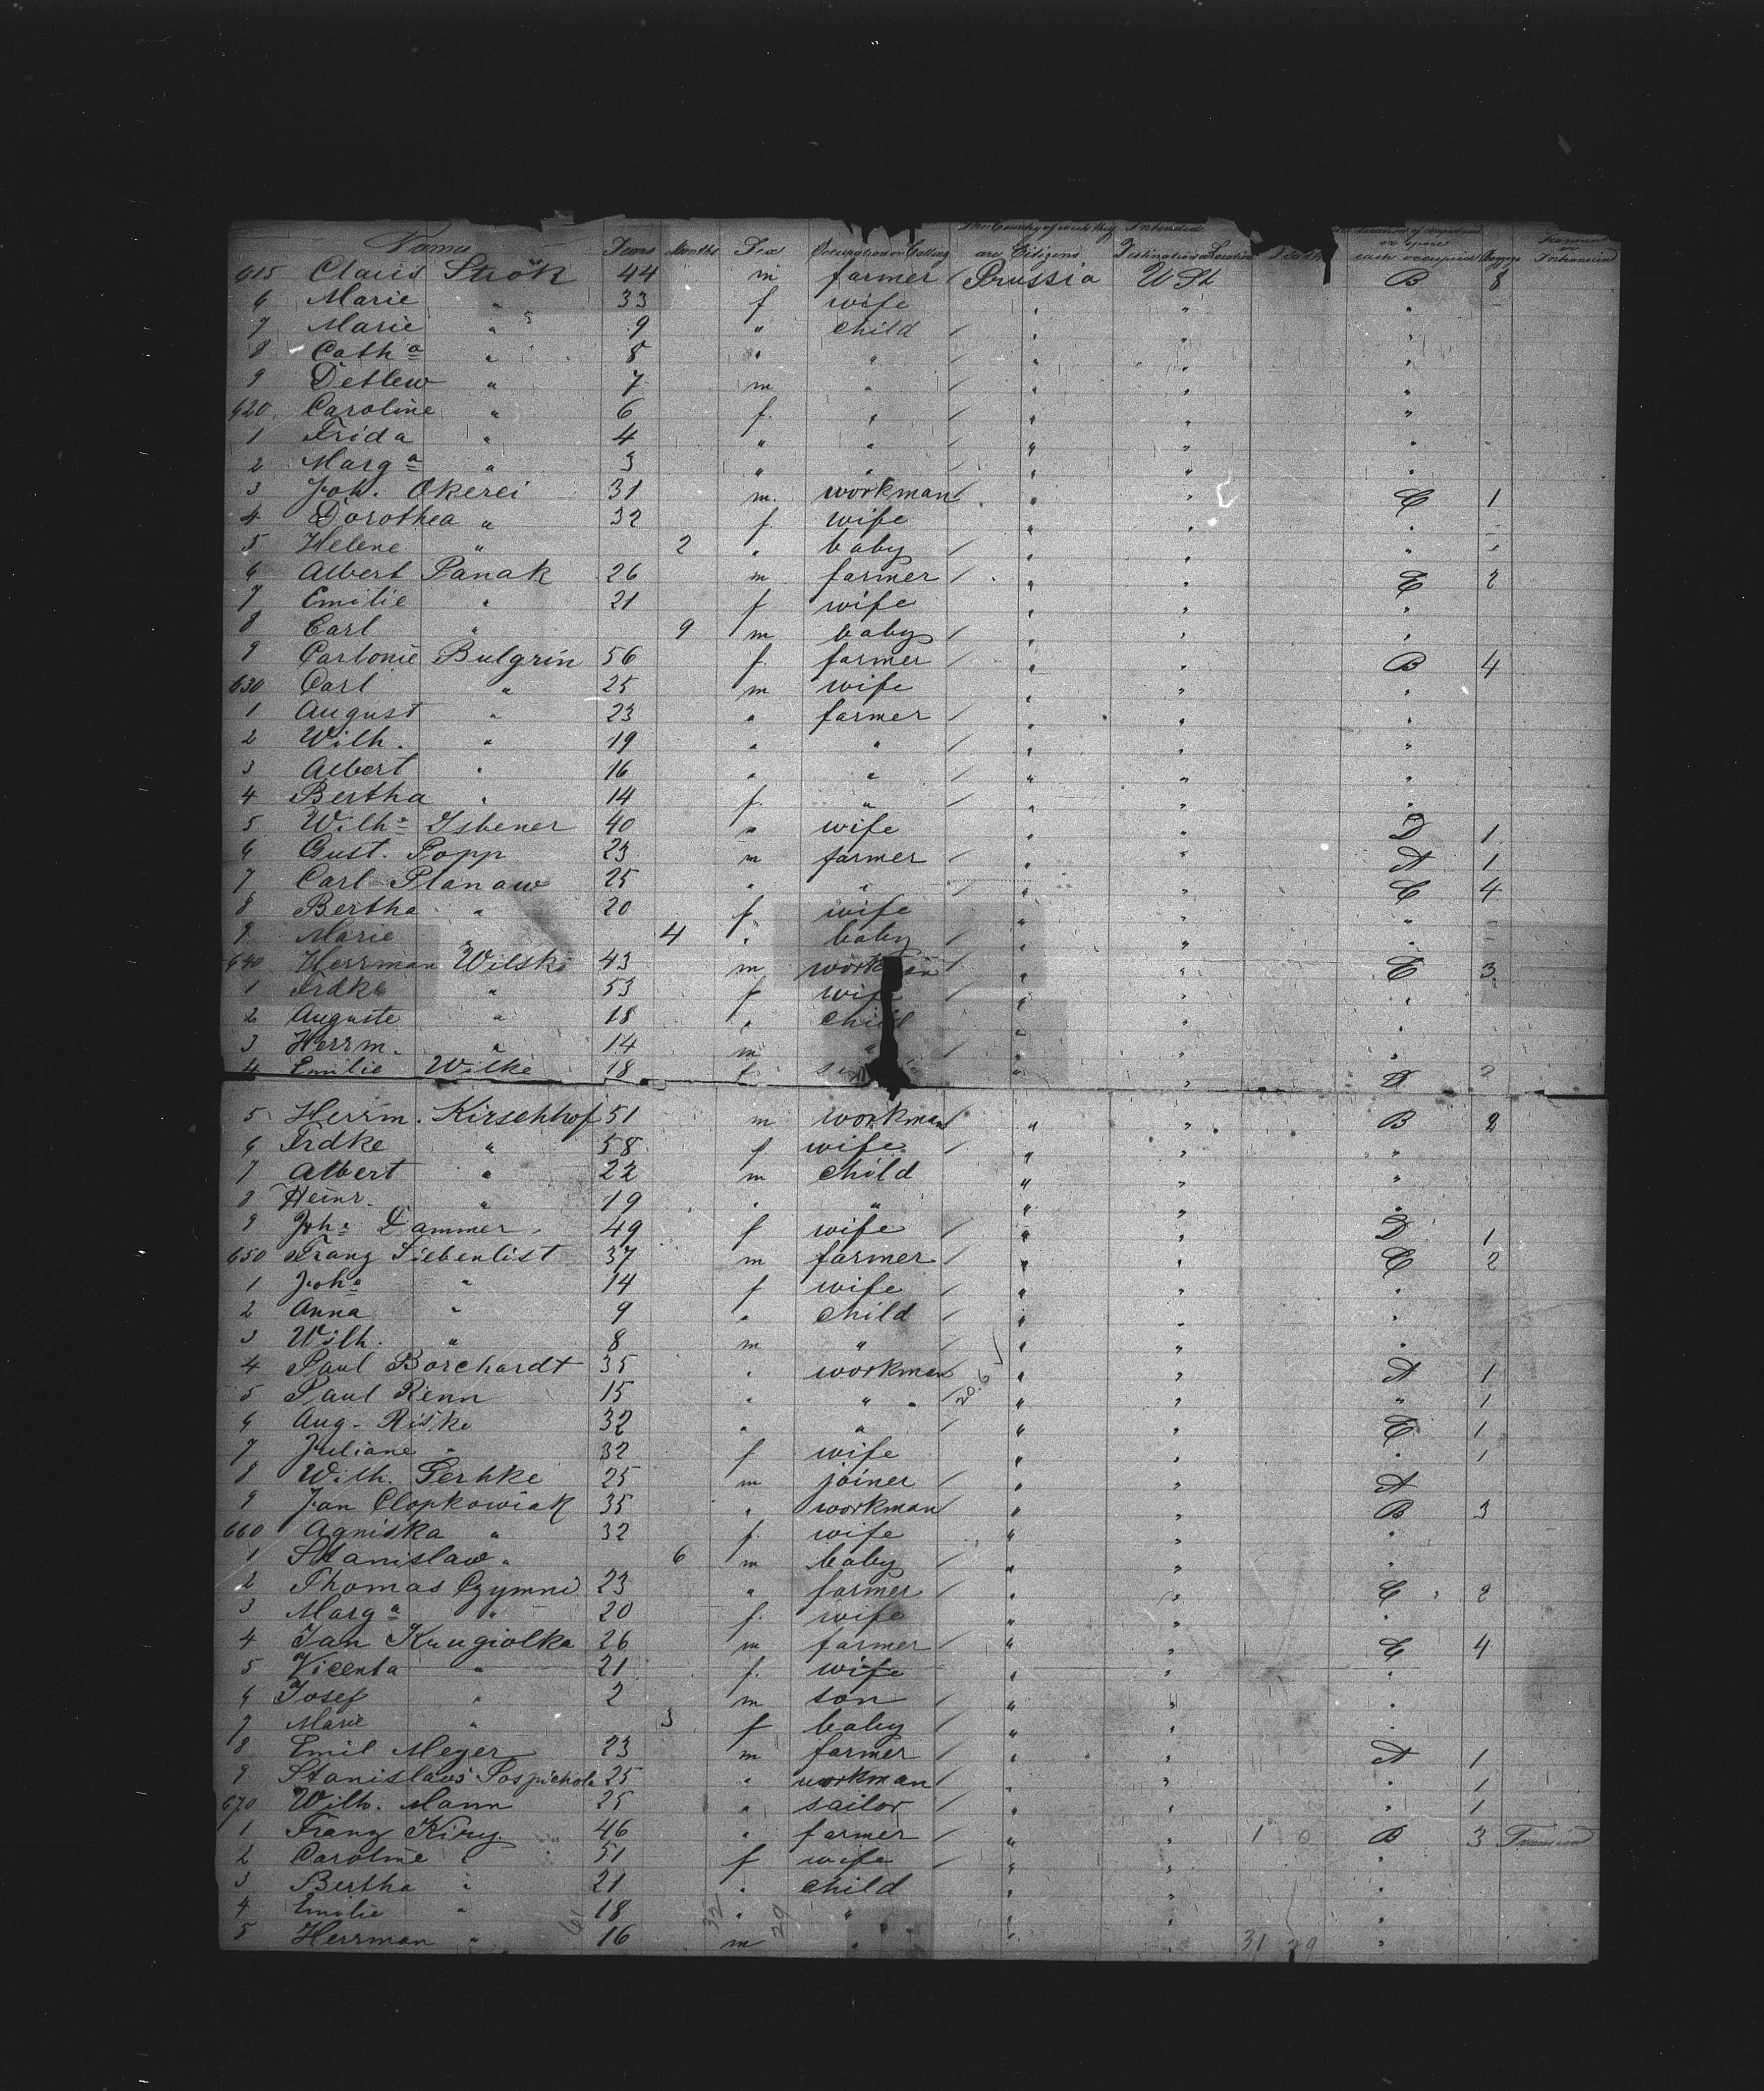 Name Years Months Sex Occupation or Calling The Country of which they are Citizens Intended Destination or Location Transient or Intransient
615 Claus Strök 44 m farmer Prussia U St. B 8
6 Marie " 33 f wife " " "
7 Marie " 9 " child " " "
8 Cath a " 8 " " " " "
9 Detlew " 7 m " " " "
620 Caroline " 6 f. " " " "
1 Frida " 4 " " " " "
2 Marg a " 3 " " " " "
3 Joh. Okerei 31 m. workman " " C 1
4 Dorothea " 32 f. wife " " "
5 Helene " 2 " baby " " "
6 Albert Panak 26 m farmer " " C 2
7 Emilie " 21 f wife " " "
8 Carl " 9 m baby " " "
9 Carlonie Bulgrin 56 f. farmer " " B 4
630 Carl " 25 m wife " " "
1 August " 23 " farmer " " "
2 Wilh. " 19 " " " " "
3 Albert " 16 " " " " "
4 Bertha " 14 f. " " " "
5 Wilh a Isbener 40 " wife " " D 1
6 Gust. Popp 23 m farmer " " A 1
7 Carl Planaw 25 " " " " C 4
8 Bertha " 20 f wife " " "
9 Marie " 4 " baby " " "
640 Herrman Wilski 43 m workman " " C 3
1 Frdke " 53 f wife " " "
2 Auguste " 18 " child " " "
3 Herrm. " 14 m " " " "
4 Emilie Wilke 18 f " " A
5 Herrm. Kirschhof 51 m workman " " B 2
6 Frdke " 58 f wife " " "
7 Albert " 22 m child " " "
8 Heinr. " 19 " " " " "
9 Joh a Dammer 49 f wife " " D 1
650 Franz Siebenlist 37 m farmer " " C 2
1 Joh a " 14 f wife " " "
2 Anna " 9 " child " " "
3 Wilh. " 8 m " " " "
4 Paul Borchardt 35 " workman " " A 1
5 Paul Renn 15 " " " " " 1
6 Aug. Riske 32 " " " " C 1
7 Juliane " 32 f wife " " " 1
8 Wilh. Gerhke 25 m joiner " " A
9 Jan Clopkowiak 35 " workman " " B 3
660 Agniska " 32 f. wife " " "
1 Stanislaw " 6 m baby " " "
2 Thomas Czymni 23 " farmer " " C 2
3 Marg a " 20 f. wife " " "
4 Jan 26 m farmer " " C 4
5 Vicenta " 21 f. wife " " "
6 Josef " 2 m son " " "
7 Marie " 3 f baby " " "
8 Emil Meyer 23 m farmer " " A 1
9 Stanislaus Pospichola 25 " workman " " " 1
670 Wilh. Mann 25 " sailor " " " 1
1 Franz 46 " farmer " " 1 0 B 3
2 Caroline " 51 f wife " " "
3 Bertha " 21 " child " " "
4 Emilie " 18 " " " " "
5 Herrman " 16 m " " " 31 29 "
61 32 29